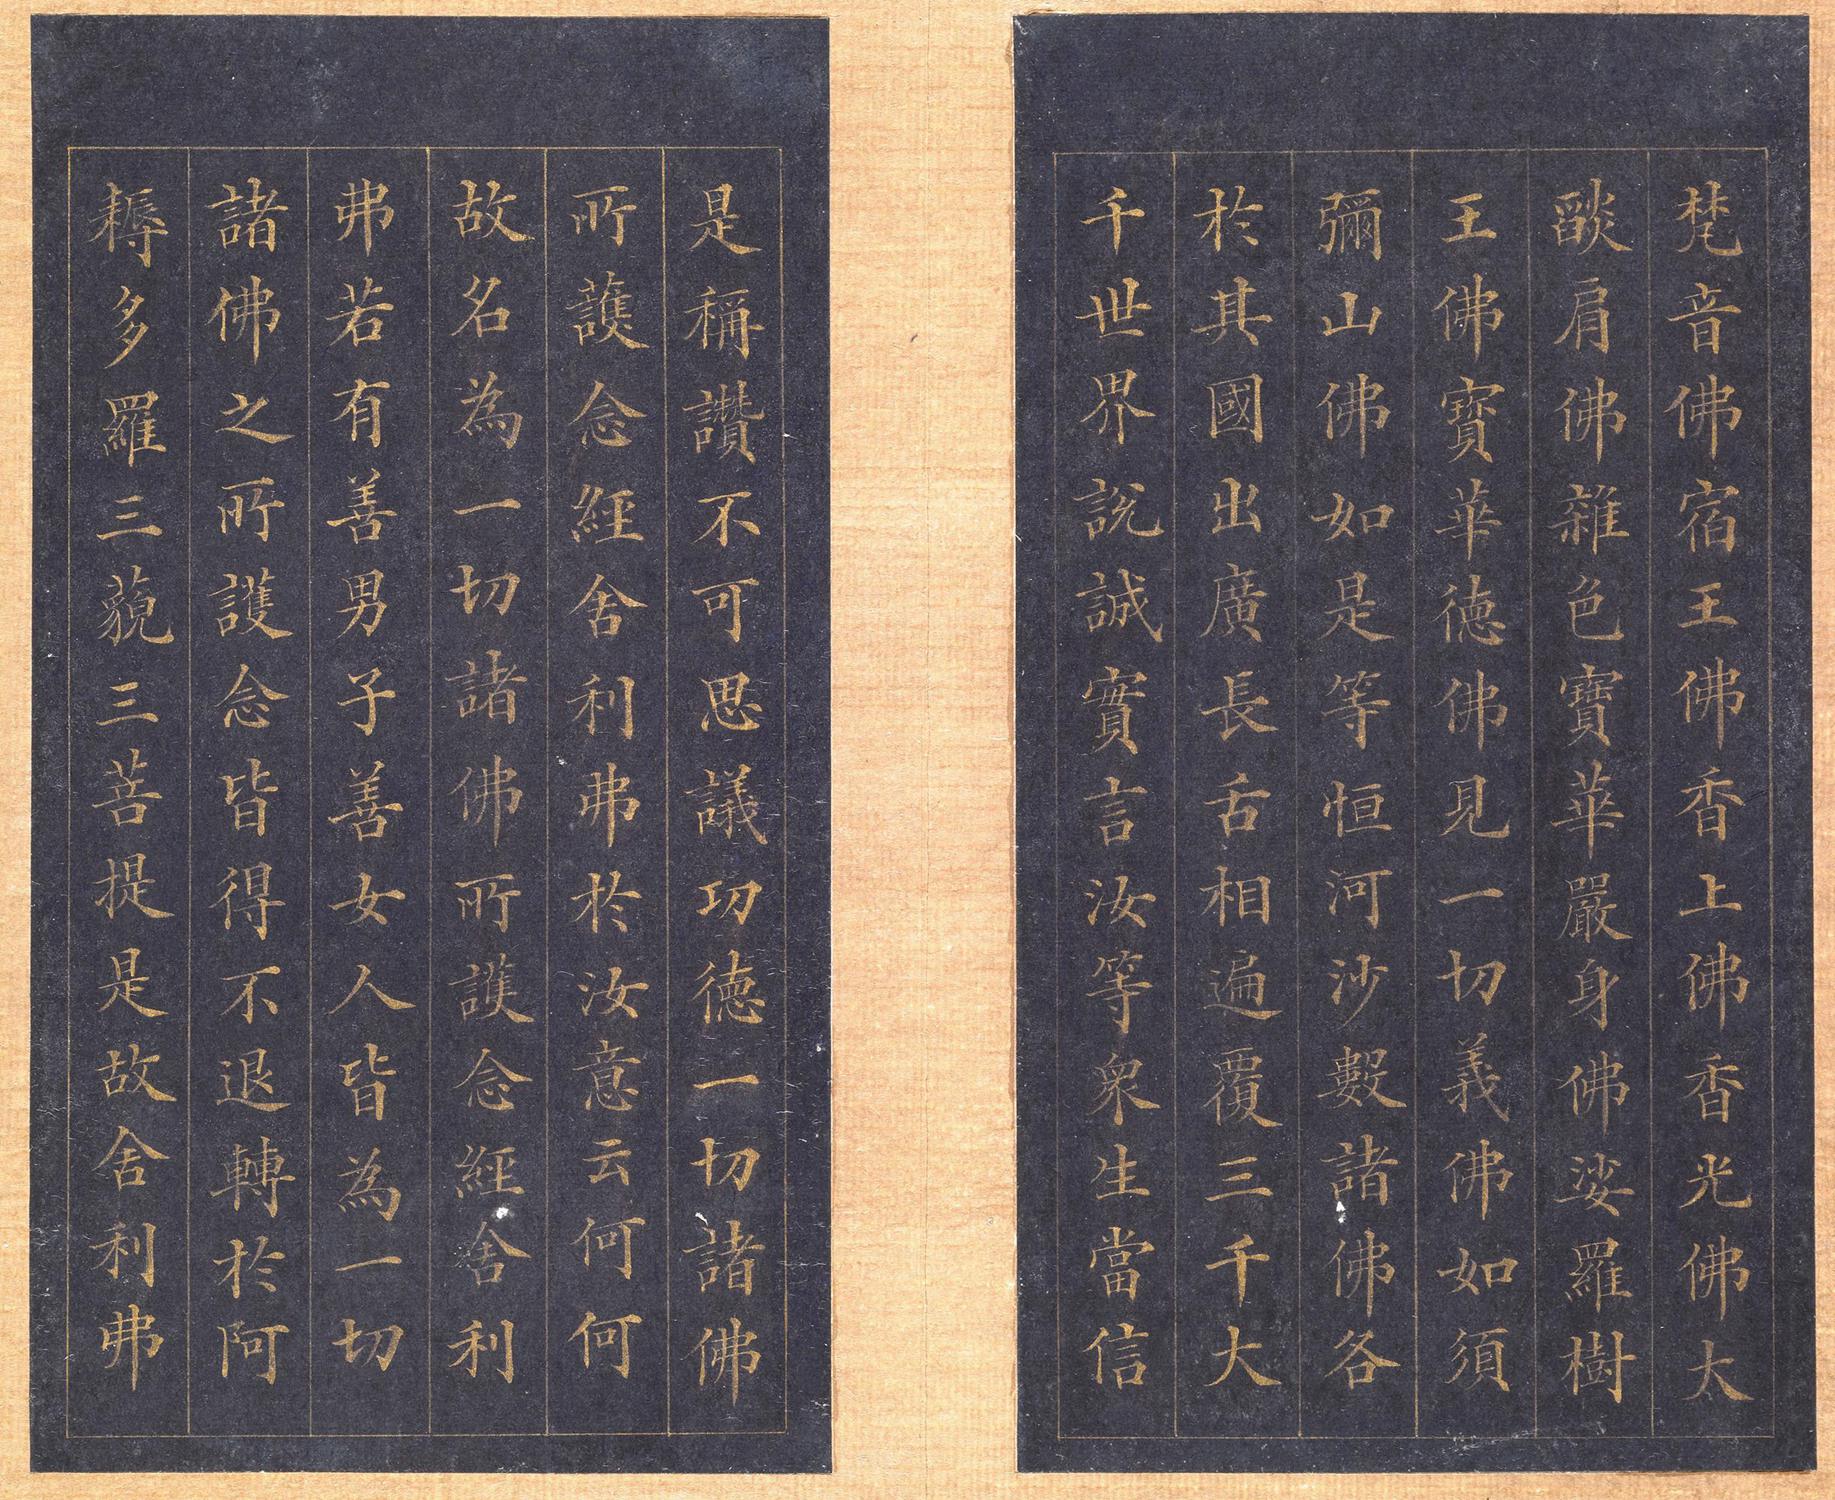 梵音佛宿王佛香上佛香光佛大
燄肩佛雜色寶華嚴身佛娑羅樹
王佛寶華德佛見一切義佛如須
彌山佛如是等恒河沙數諸佛各
於其國出廣長舌相遍覆三千大
千世界說誠實言汝等衆生當信
是稱讚不可思議功德一切諸佛
所護念經舍利弗於汝意云何何
故名為一切諸佛所護念經舍利
弗若有善男子善女人皆為一切
諸佛之所護念皆得不退轉於阿
耨多羅三藐三菩提是故舍利弗